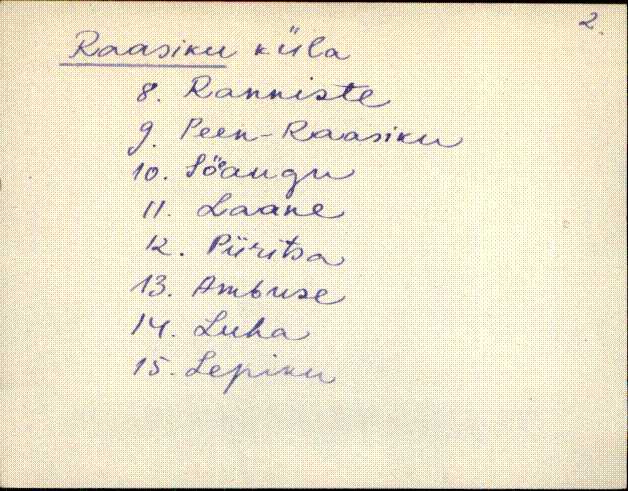 2.
Raasiku küla
8. Ranniste
9. Peen-Raasiku
10. Sõaugu
11. Laane
12. Piiritsa
13. Ambuse
14. Luha
15. Lepiku